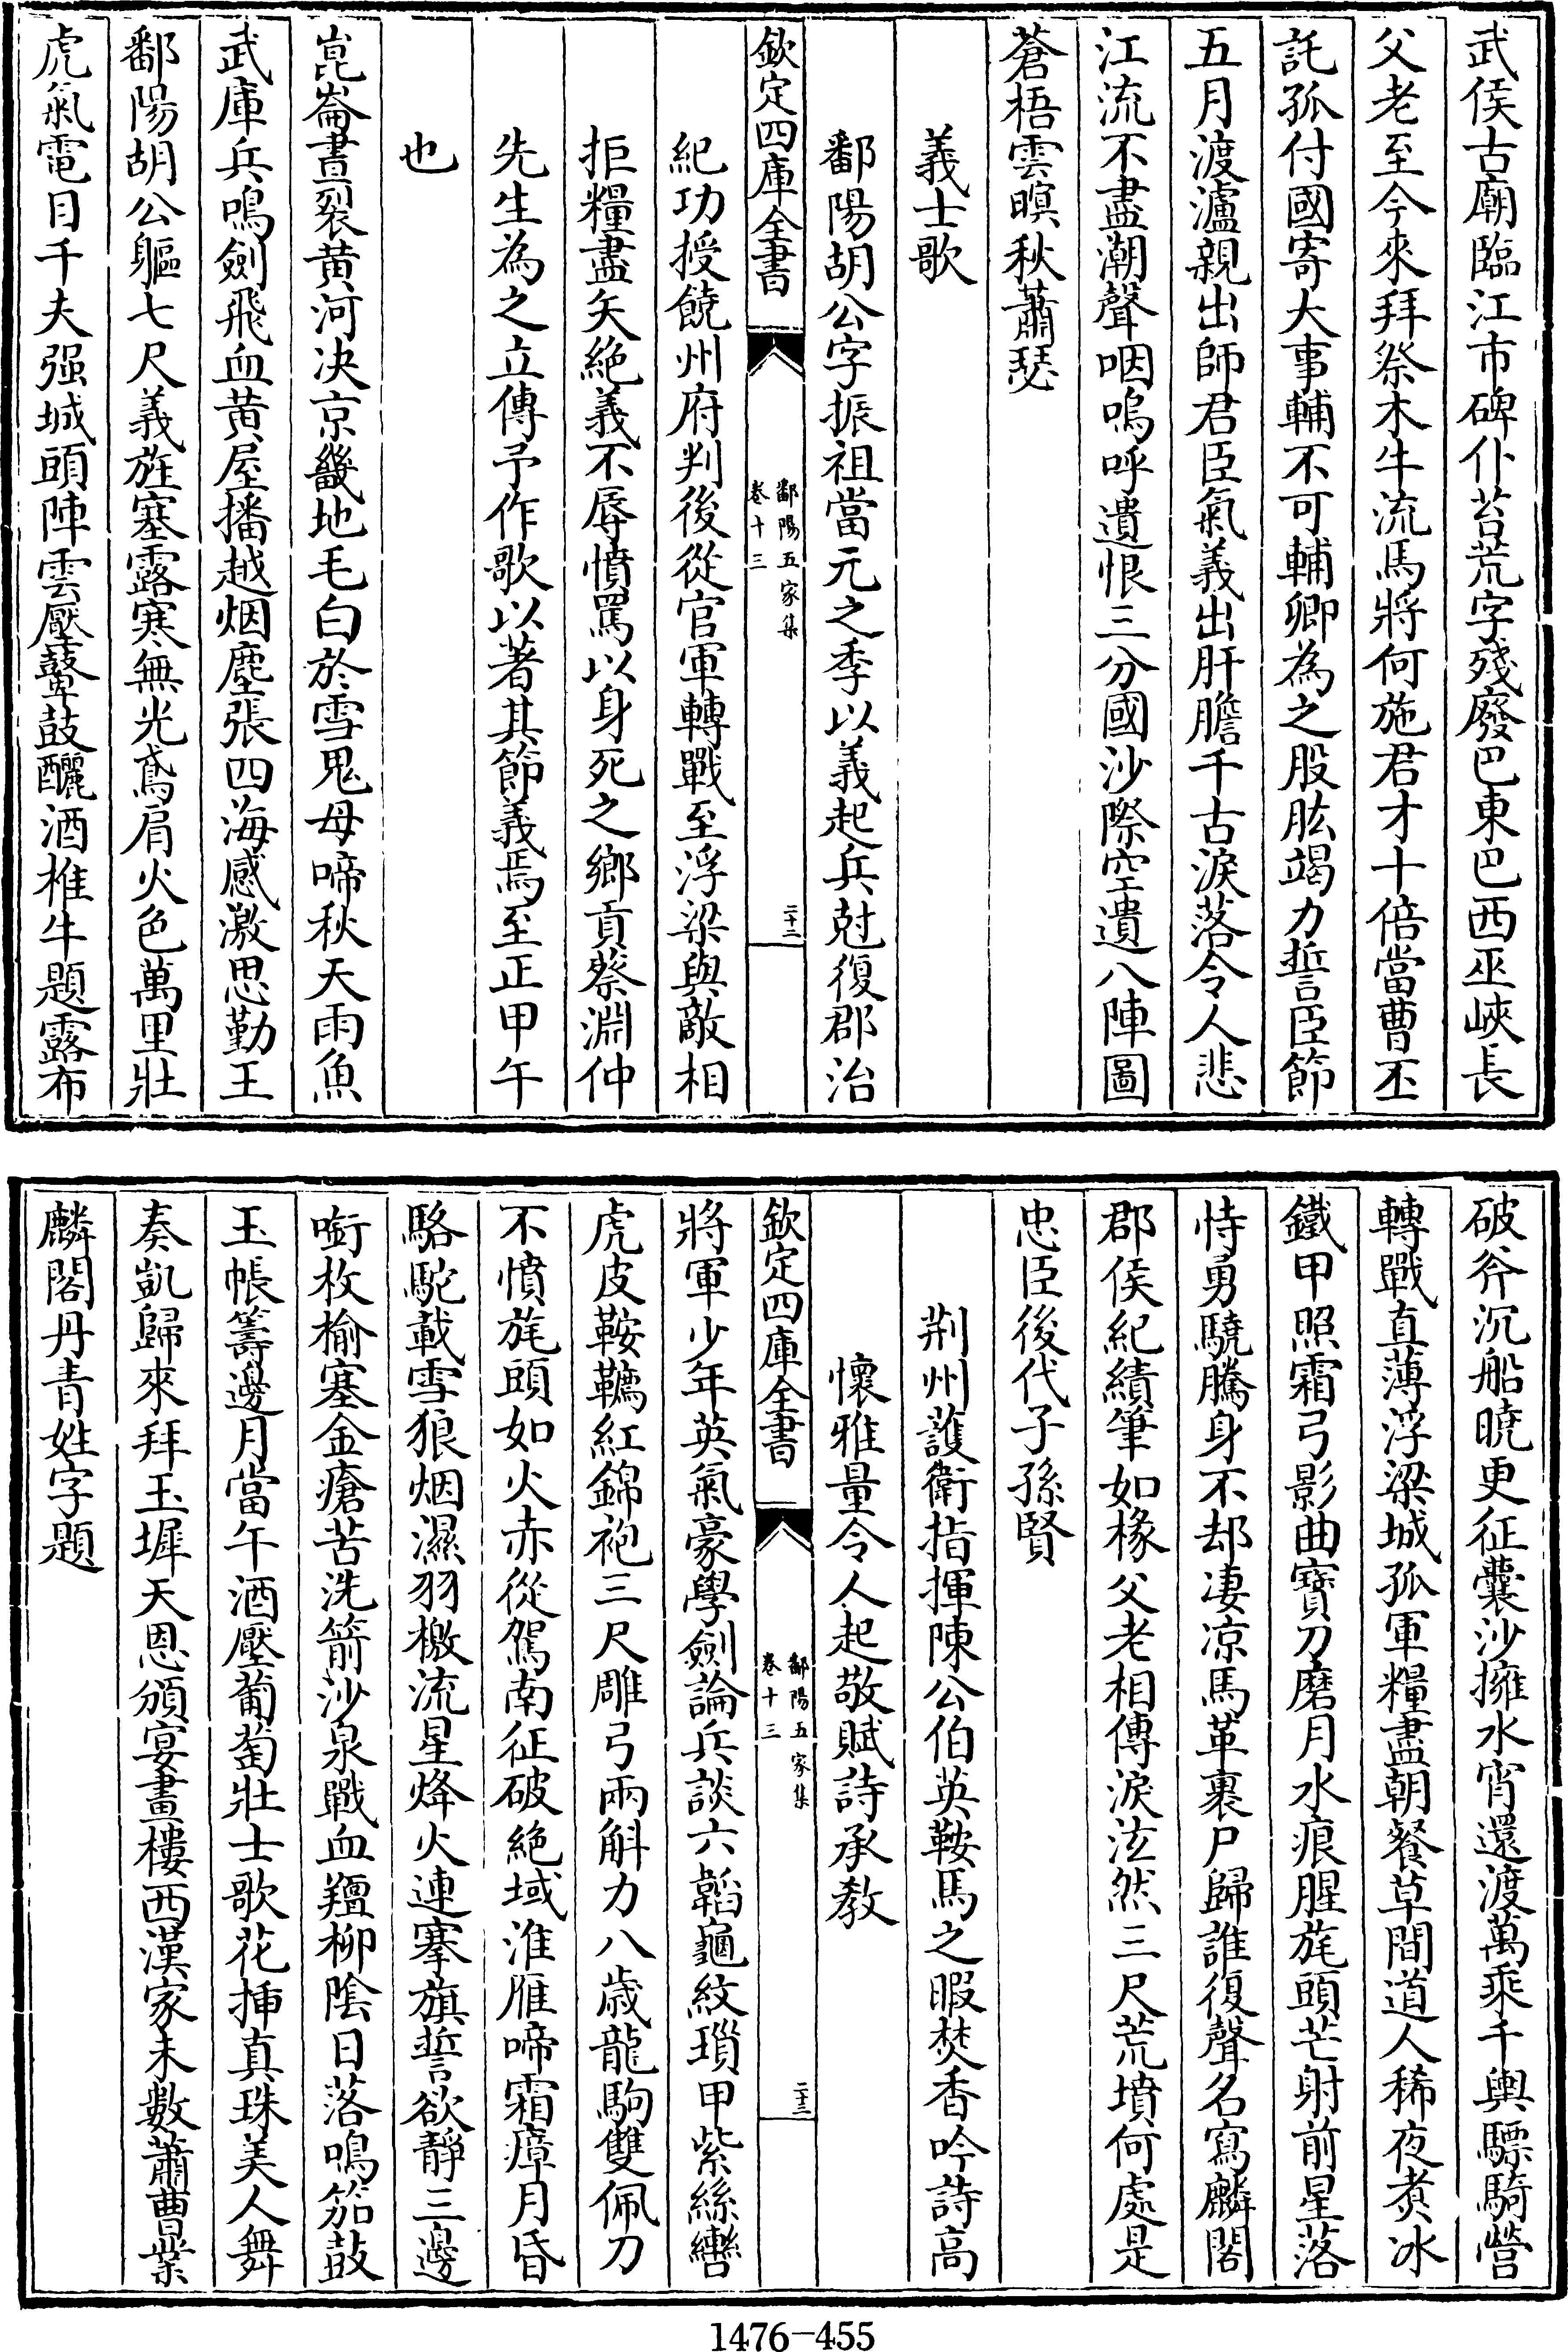 武侯古廟臨江市碑仆苔荒字殘廢巴東巴西巫峽長
父老至今來拜祭木牛流馬將何施君才十倍當曹丕
託孤付國寄大事輔不可輔卿為之股肱竭力誓臣節
五月渡瀘親出師君臣氣義出肝膽千古淚落令人悲
江流不盡潮聲咽嗚呼遺恨三分國沙際空遺八陣圖
蒼梧雲暝秋蕭瑟
義士歌
鄱陽胡公字振祖當元之季以義起兵尅復郡治
欽定四庫全書
鄱陽五家集
卷十三
二十二
紀功授饒州府判後從官軍轉戰至浮梁與敵相
拒糧盡矢絶義不辱憤罵以身死之鄉貢蔡淵仲
先生為之立傳予作歌以著其節義焉至正甲午
也
崑崙晝裂黄河决京畿地毛白於雪鬼母啼秋天雨魚
武庫兵鳴劍飛血黄屋播越烟塵張四海感激思勤王
鄱陽胡公軀七尺義旌塞露寒無光鳶肩火色萬里壯
虎氣電目千夫强城頭陣雲壓鼙鼓釃酒椎牛題露布
破斧沉船曉更征囊沙擁水宵還渡萬乘千輿驃騎營
轉戰直薄浮梁城孤軍糧盡朝餐草間道人稀夜煑冰
鐵甲照霜弓影曲寶刀磨月水痕腥旄頭芒射前星落
恃勇驍騰身不却凄凉馬革裹尸歸誰復聲名寫麟閣
郡侯紀績筆如椽父老相傳淚泫然三尺荒墳何處是
忠臣後代子孫賢
荆州護衛指揮陳公伯英鞍馬之暇焚香吟詩高
懷雅量令人起敬賦詩承教
欽定四庫全書
鄱陽五家集
卷十三
二十三
將軍少年英氣豪學劍論兵談六韜龜紋瑣甲紫絲轡
虎皮鞍韉紅錦袍三尺雕弓兩斛力八歲龍駒雙佩刀
不憤旄頭如火赤從駕南征破絶域淮雁啼霜瘴月昏
駱駝載雪狼烟濕羽檄流星烽火連搴旗誓欲靜三邊
啣枚榆塞金瘡苦洗箭沙泉戰血羶柳陰日落鳴笳鼓
玉帳籌邊月當午酒壓葡萄壯士歌花揷真珠美人舞
奏凱歸來拜玉墀天恩頒宴畫樓西漢家未數蕭曹業
麟閣丹青姓字題
1476—455